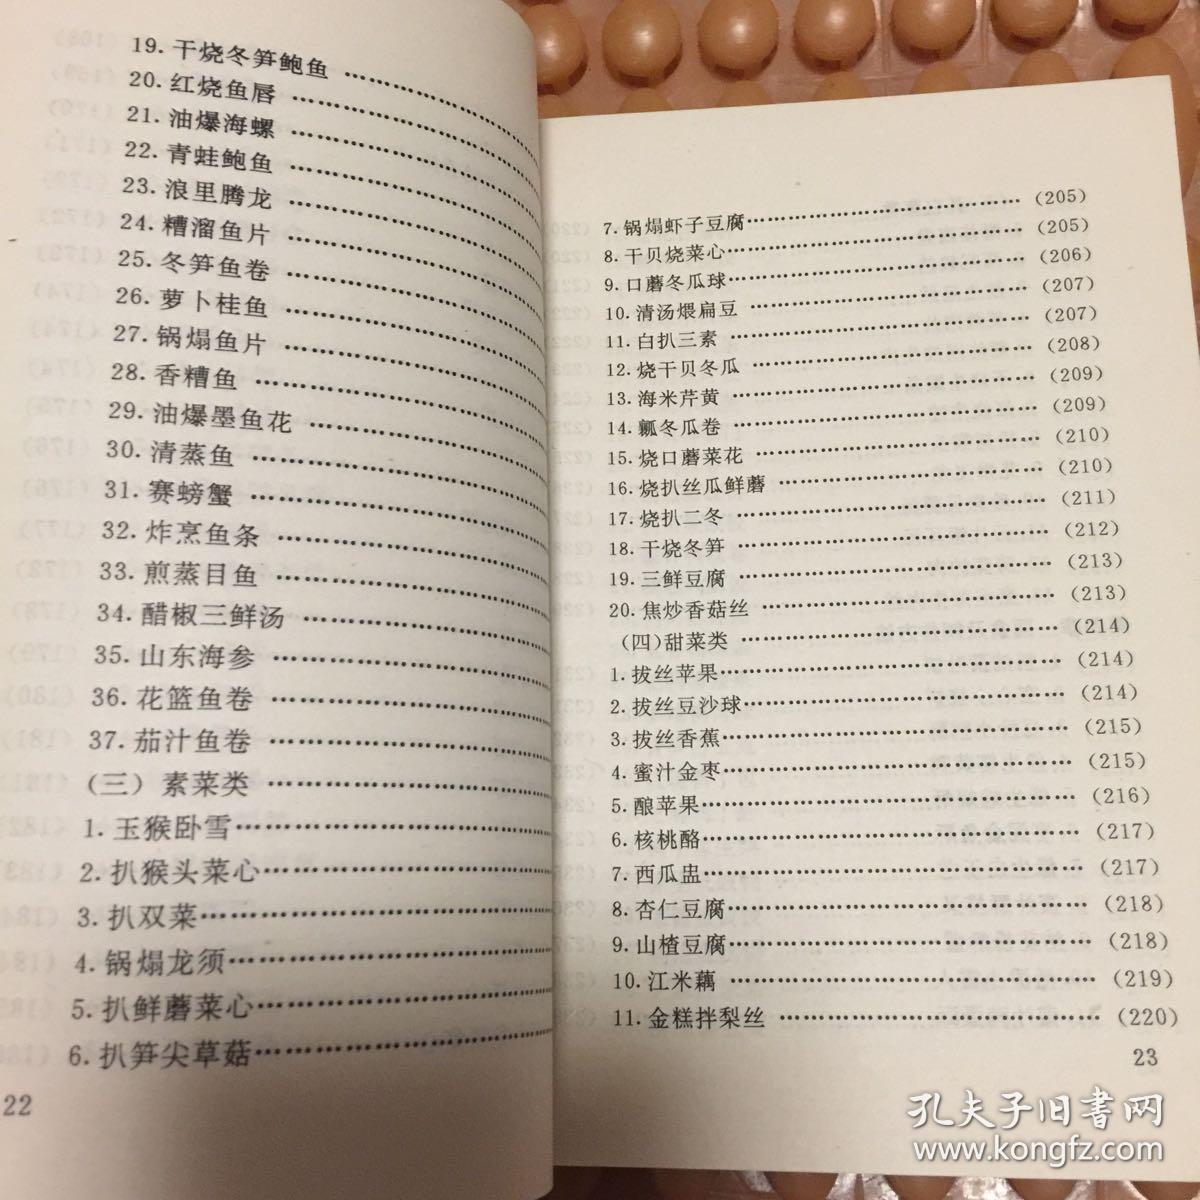 19. 干烧冬笋鲍鱼 ……………………
20. 红烧鱼唇 ……………………
21. 油爆海螺 ……………………
22. 青蛙鲍鱼 ……………………
23. 浪里腾龙 ……………………
24. 糟溜鱼片 ……………………
25. 冬笋鱼卷 ……………………
26. 萝卜桂鱼 ……………………
27. 锅塌鱼片 ……………………
28. 香糟鱼 ……………………
29. 油爆墨鱼花 ……………………
30. 清蒸鱼 ……………………
31. 赛螃蟹 ……………………
32. 炸烹鱼条 ……………………
33. 煎蒸目鱼 ……………………
34. 醋椒三鲜汤 ……………………
35. 山东海参 ……………………
36. 花篮鱼卷 ……………………
37. 茄汁鱼卷 ……………………
(三) 素菜类 ……………………
1. 玉猴卧雪……………………
2. 扒猴头菜心……………………
3. 扒双菜……………………
4. 锅塌龙须……………………
5. 扒鲜蘑菜心……………………
6. 扒笋尖草菇……………………
22
7. 锅塌虾子豆腐…………………… (205)
8. 干贝烧菜心…………………… (205)
9. 口蘑冬瓜球…………………… (206)
10. 清汤煨扁豆 …………………… (207)
11. 白扒三素 …………………… (207)
12. 烧干贝冬瓜 …………………… (208)
13. 海米芹黄 …………………… (209)
14. 瓤冬瓜卷 …………………… (209)
15. 烧口蘑菜花 …………………… (210)
16. 烧扒丝瓜鲜蘑 …………………… (210)
17. 烧扒二冬 …………………… (211)
18. 干烧冬笋 …………………… (212)
19. 三鲜豆腐 …………………… (213)
20. 焦炒香菇丝 …………………… (213)
(四)甜菜类 …………………… (214)
1. 拔丝苹果…………………… (214)
2. 拔丝豆沙球…………………… (214)
3. 拔丝香蕉…………………… (215)
4. 蜜汁金枣…………………… (215)
5. 酿苹果…………………… (216)
6. 核桃酪…………………… (217)
7. 西瓜盅…………………… (217)
8. 杏仁豆腐…………………… (218)
9. 山楂豆腐…………………… (218)
10. 江米藕 …………………… (219)
11. 金糕拌梨丝 …………………… (220)
23
孔夫子旧书网
www.kongfz.com